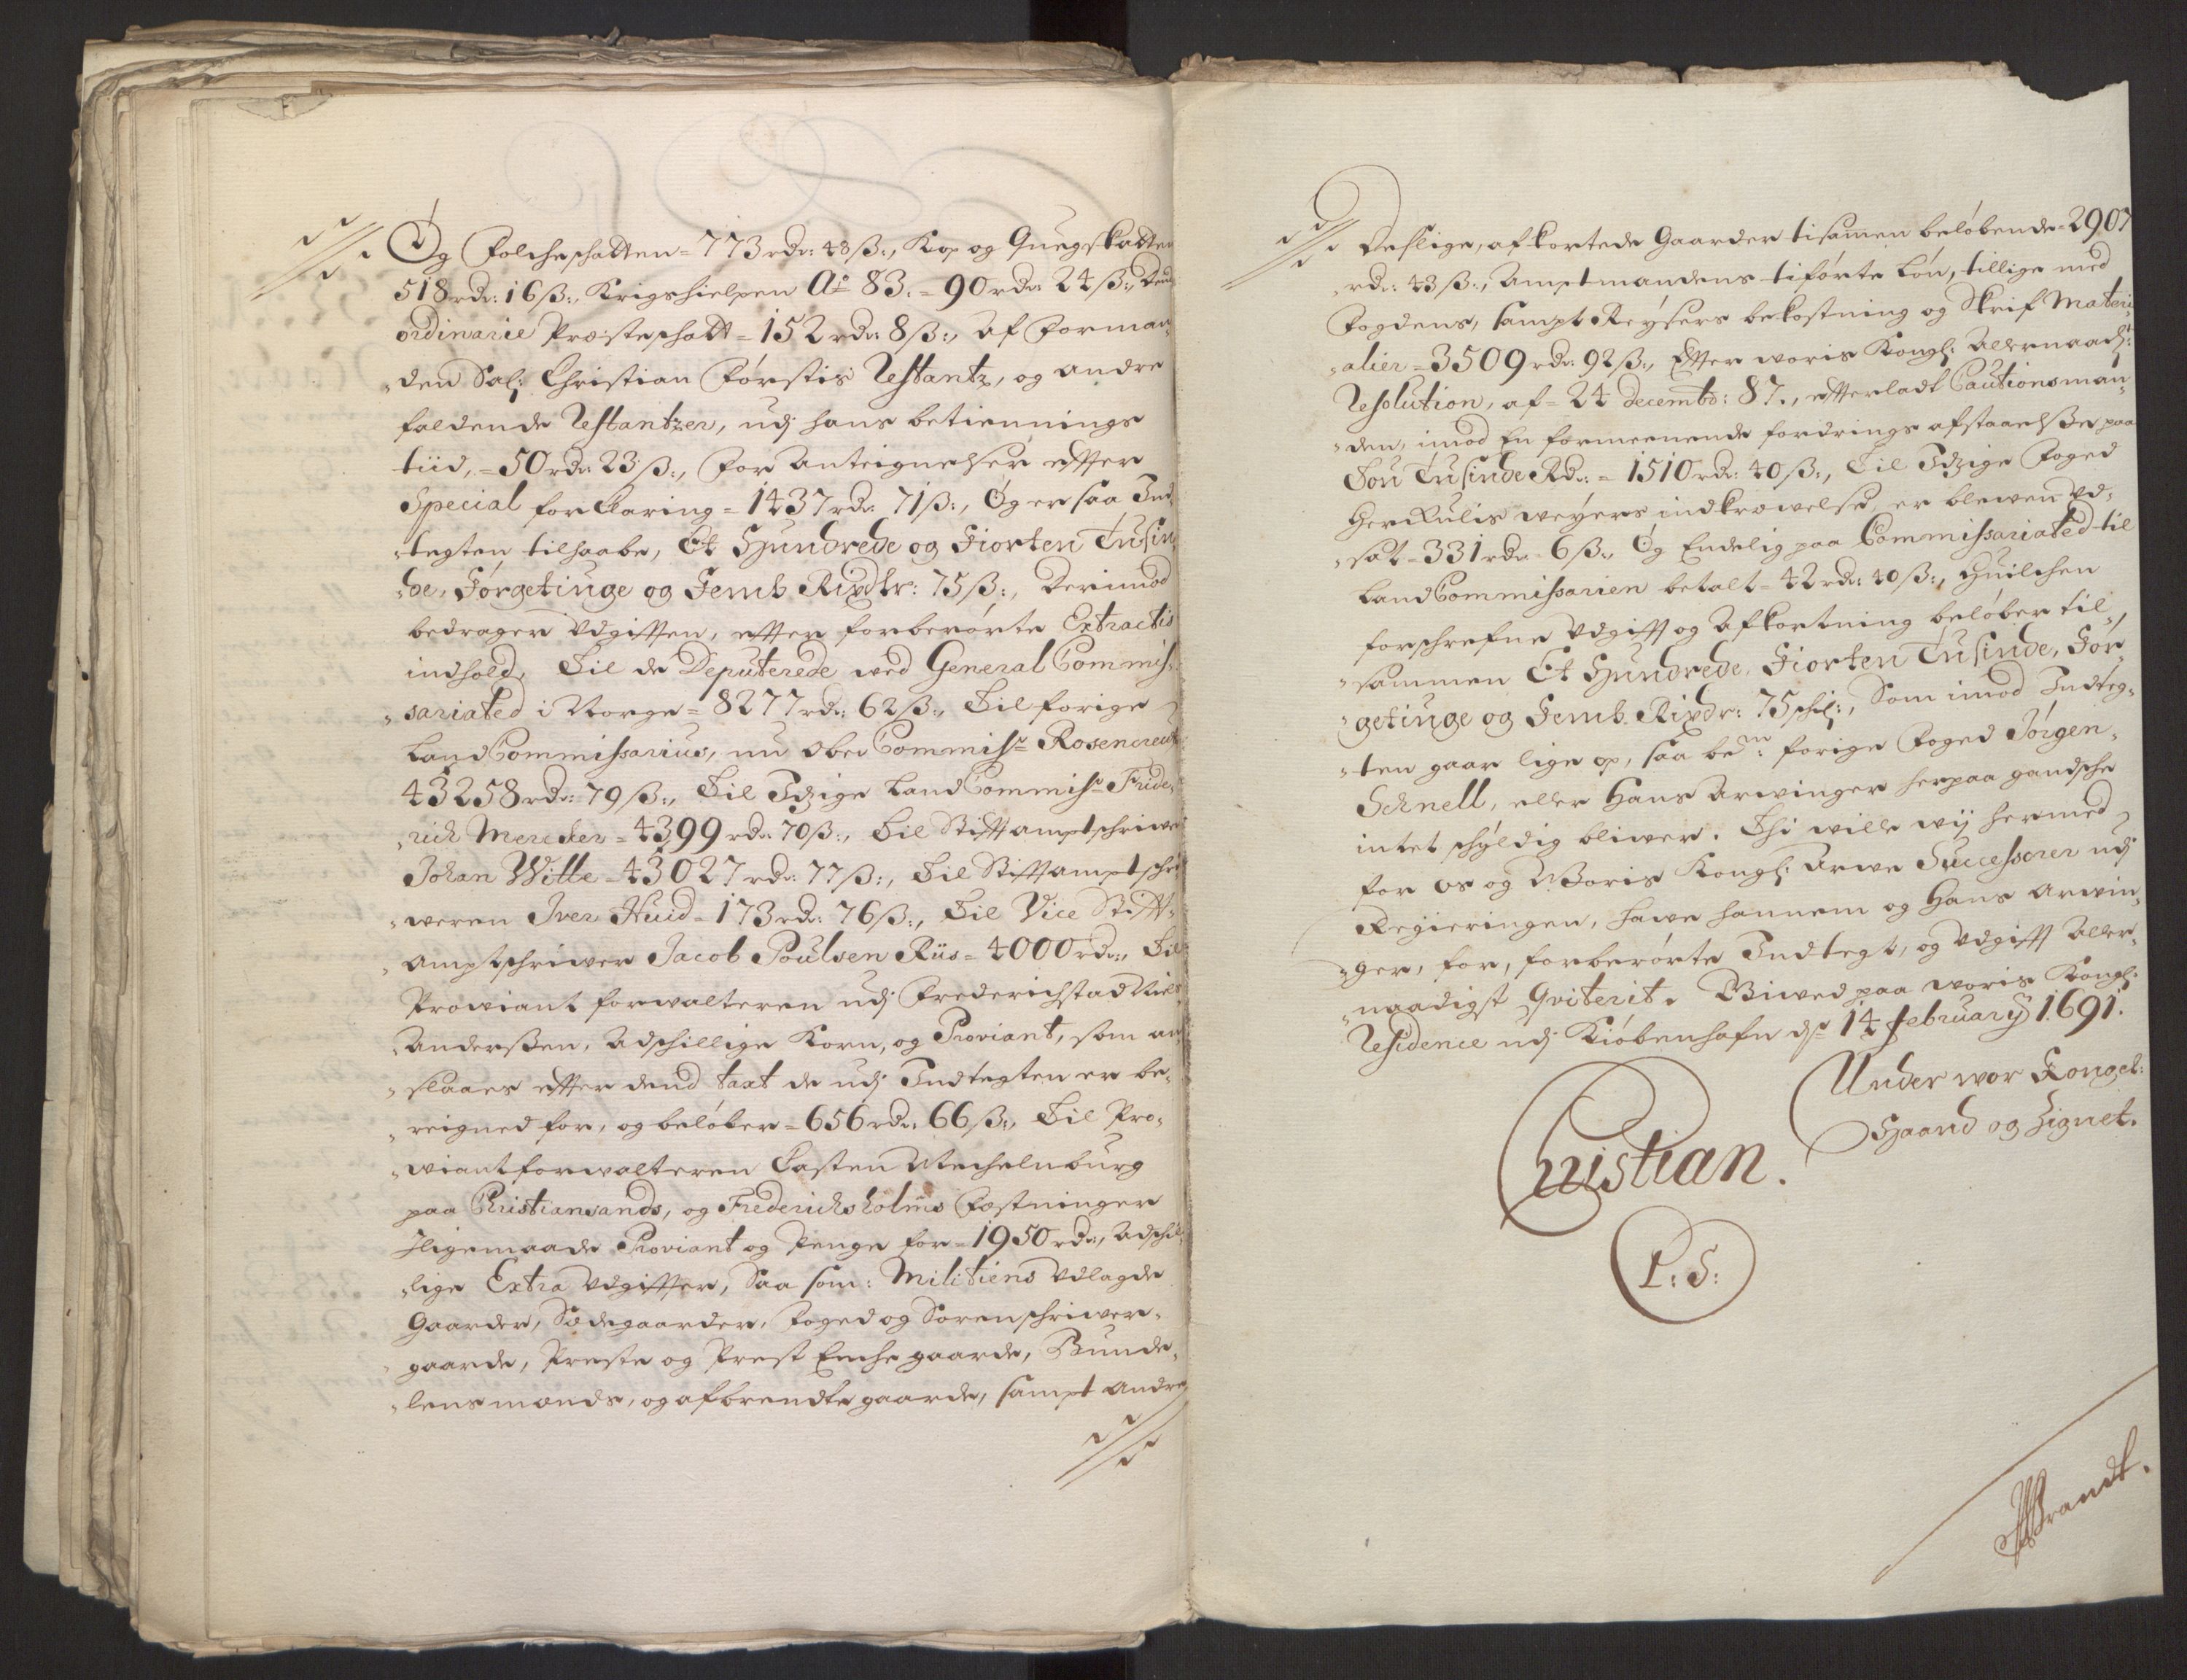 Og Folcheschatten = 773 rdr: 48 ß:, Kop og Quegskatten
518 rdr: 16 ß:, Krigshielpen Ao 83. = 90 rdr: 24 ß:, Dend
ordinarie Præsteschatt = 152 rdr: 8 ß:, Af Forman-
den Sal: Christian Førstis Restantz, og andre
faldende Restantzer, udj hans betiennings
tiid, = 50 rdr: 23 ß:, For Anteignelser effter
Special forklaring = 1437 rdr: 71 ß:, Og er saa Ind-
tegten tilhaabe, Et Hundrede og Fiorten Tusin-
de, Førgetiuge og Femb Rixdlr: 75 ß:, Derimod
bedrager Udgifften, effter forberørte Extractis
indhold, Til de Deputerede wed General Commis-
sariated i Norge = 8277 rdr: 62 ß:, Til forige
Land Commissarius, nu Ober Commiss: Rosencreutz
43258 rdr: 79 ß:, Til Itzige Land Commiss: Fride-
rich Mercker = 4399 rdr: 70 ß:, Til Stifftamptschriwer
Johan Wille = 43027 rdr: 77 ß:, Til Stifftamptschri-
weren Iver Huid = 173 rdr: 76 ß:, Til Vice Stifft-
amptschriwer Jacob Poulsen Riis = 4000 rdr:, Til
Prowiant forwalteren udj Frederichstad Niels
Anderßen, Adschillige Korn, og Proviant, som an-
slaaes effter dend taxt de udj Indtegten er be-
reigned for, og beløber = 656 rdr: 66 ß:, Til Pro-
wiantforwalteren Casten Mechelnburg
paa Christiansands, og Frederichsholms Fæstninger
Iligemaade Proviant og Penge for = 1950 rdr:, Adschil-
lige Extra Udgiffter, Saa som: Militiens Udlagde
Gaarder, Sædegaarder, Foged og Sorenschriwer-
gaarde, Preste og Prest Enche gaarde, Bunde-
lensmænds, og afbrendte gaarde, sampt andre
Deslige, afkortede Gaarder tilsamen beløbende = 2907
rdr: 43 ß:, Amptmandens tilførte Løn, tillige med
Fogdens, sampt Reysers bekostning og Skrif Materi-
alier = 3509 rdr: 92 ß:, Effter woris Kongl: Allernaad:
Resolution, af = 24 Decembr: 87., efterladt Cautionsman-
den, imod En formeenende fordrings afstaaelße paa
Tou Tusinde Rdr: = 1510 rdr: 40 ß:, Til Itzige Foged
Herkulis Weyers indkrewelse er blewen Ud-
sat = 331 rdr: 6 ß:, Og Endelig paa Commissariated til
Land Commissarien betalt = 42 rdr: 40 ß:, Huilchen
forschrefne Udgifft og Afkortning beløber til-
sammen Et Hundrede, Fiorten Tusinde, Før-
getiuge og Femb. Rixdr: 75 schil:, Som imod Indteg-
ten gaar lige op, saa bem: forige Foged Jørgen
Schnell, eller Hans Arwinger herpaa gandsche
intet schyldig bliwer. Thi wille wij hermed
for os og Woris Kongl: Arwe Successorer udj
Regieringen, hawe hannem og Hans Arwin-
ger, for, forberørte Indtegt, og Udgifft Aller-
naadigst Qviterit. Giwed paa woris Kongl:
Residence udj Kiøbenhafn d: 14 February 1691.
Under wor Kongel:
Haand og Signet.
Christian.
L: S:
Brandt.